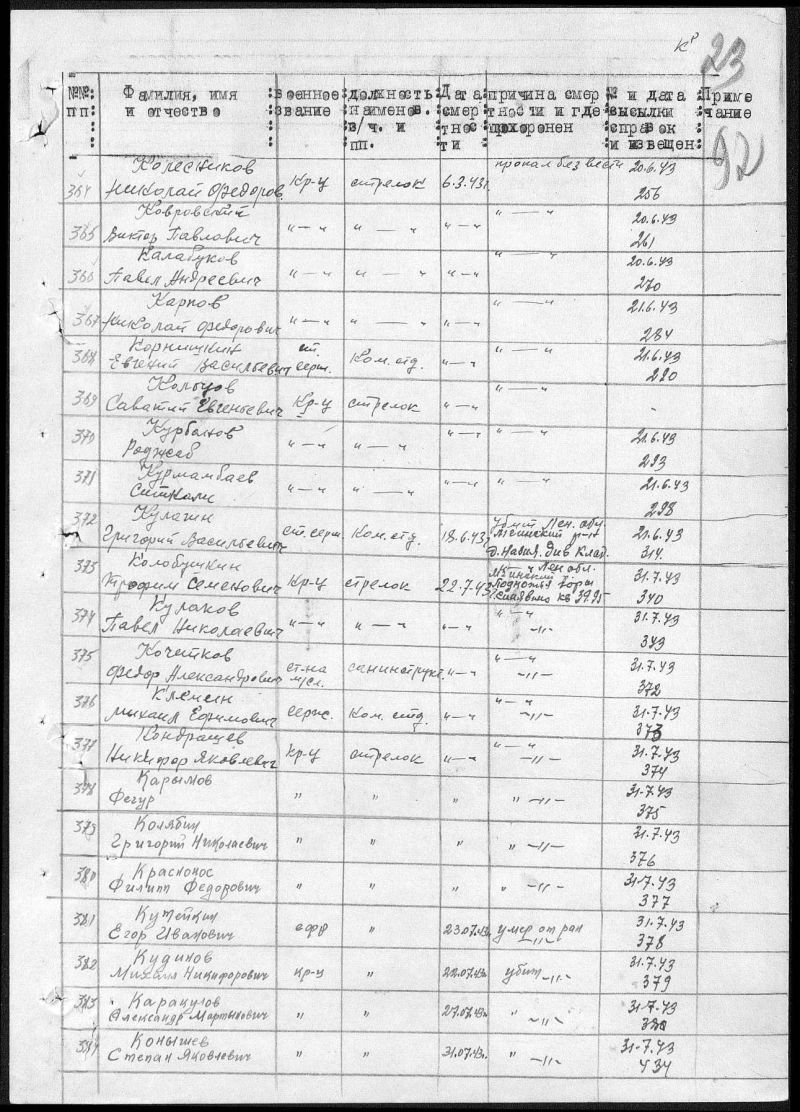 Кр
23
92
№№ пп
Фамилия, имя и отчество
военное звание
должность наименов. в/ч. и пп.
Дата смертности
причина смертности и где похоронен
№ и дата высылки справок и извещен
Примечание
364 Колесников Николай Федоров. Кр-ц стрелок 6.3.43г. пропал без вести 20.6.43 256
365 Ковровский Виктор Павлович "—" "—" "—" "—" 20.6.43 261
366 Калабуков Павел Андреевич "—" "—" "—" "—" 20.6.43 270
367 Карпов Николай Федорович "—" "—" "—" "—" 21.6.43 284
368 Корничкин Евгений Васильевич ст. серж. Ком. отд. "—" "—" 21.6.43 290
369 Кольцов Саватий Евгеньевич Кр-ц стрелок "—" "—" -
370 Курбанов Раджаб "—" "—" "—" "—" 21.6.43 293
371 Курмамбаев "—" "—" "—" "—" 21.6.43 298
372 Кулагин Григорий Васильевич ст. серж. Ком. отд. 18.6.43г. Убит Лен. обл. Мгинский р-н Див. Клад. 21.6.43 314
373 Колобушкин Трофим Семенович Кр-ц стрелок 22.7.43 Лен обл. Мгинский подножья горы кв 3995 31.7.43 340
374 Кулаков Павел Николаевич "—" "—" "—" "—" -"- 31.7.43 343
375 Кочетков Федор Александрович ст-на м/сл. санинструкт. "—" "—" -"- 31.7.43 372
376 Клемин Михаил Ефимович серж. Ком. отд. "—" "—" -"- 31.7.43 373
377 Кондрашев Никифор Яковлевич кр-ц стрелок "—" "—" -"- 31.7.43 374
378 Карымов Фегур " " " " -"- 31.7.43 375
379 Колябин Григорий Николаевич " " " " -"- 31.7.43 376
380 Краснонос Филипп Федорович " " " " -"- 31.7.43 377
381 Кутейкин Егор Иванович ефр " 23.07.43г. умер от ран -"- 31.7.43 378
382 Кудинов Михаил Никифорович кр-ц " 22.07.43г. убит -"- 31.7.43 379
383 Каракулов Александр Мартынович " " 27.07.43г. " -"- 31.7.43 380
384 Конышев Степан Яковлевич " " 31.07.43г. " -"- 31.7.43 434